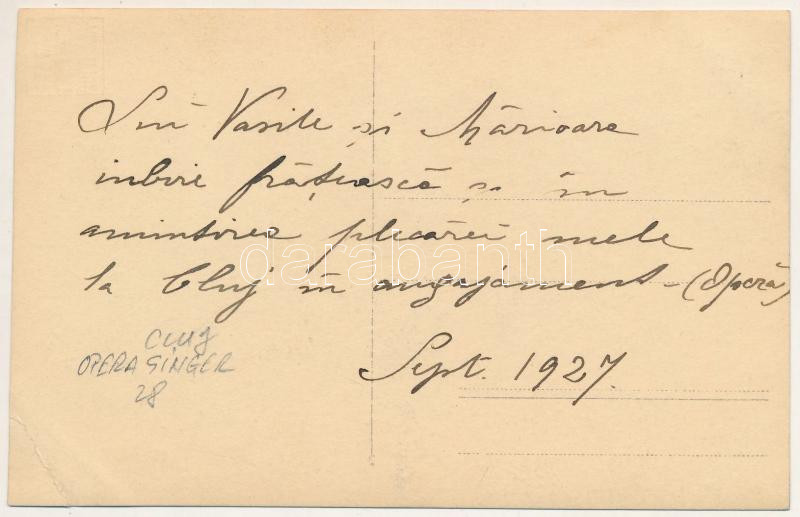 Lui Vasile și Mărioare
iubire frățească și în
amintirea plecărei mele
la Cluj în angajament – (Operă)
Sept. 1927.
Cluj
OPERA SINGER
28
darabanth.com